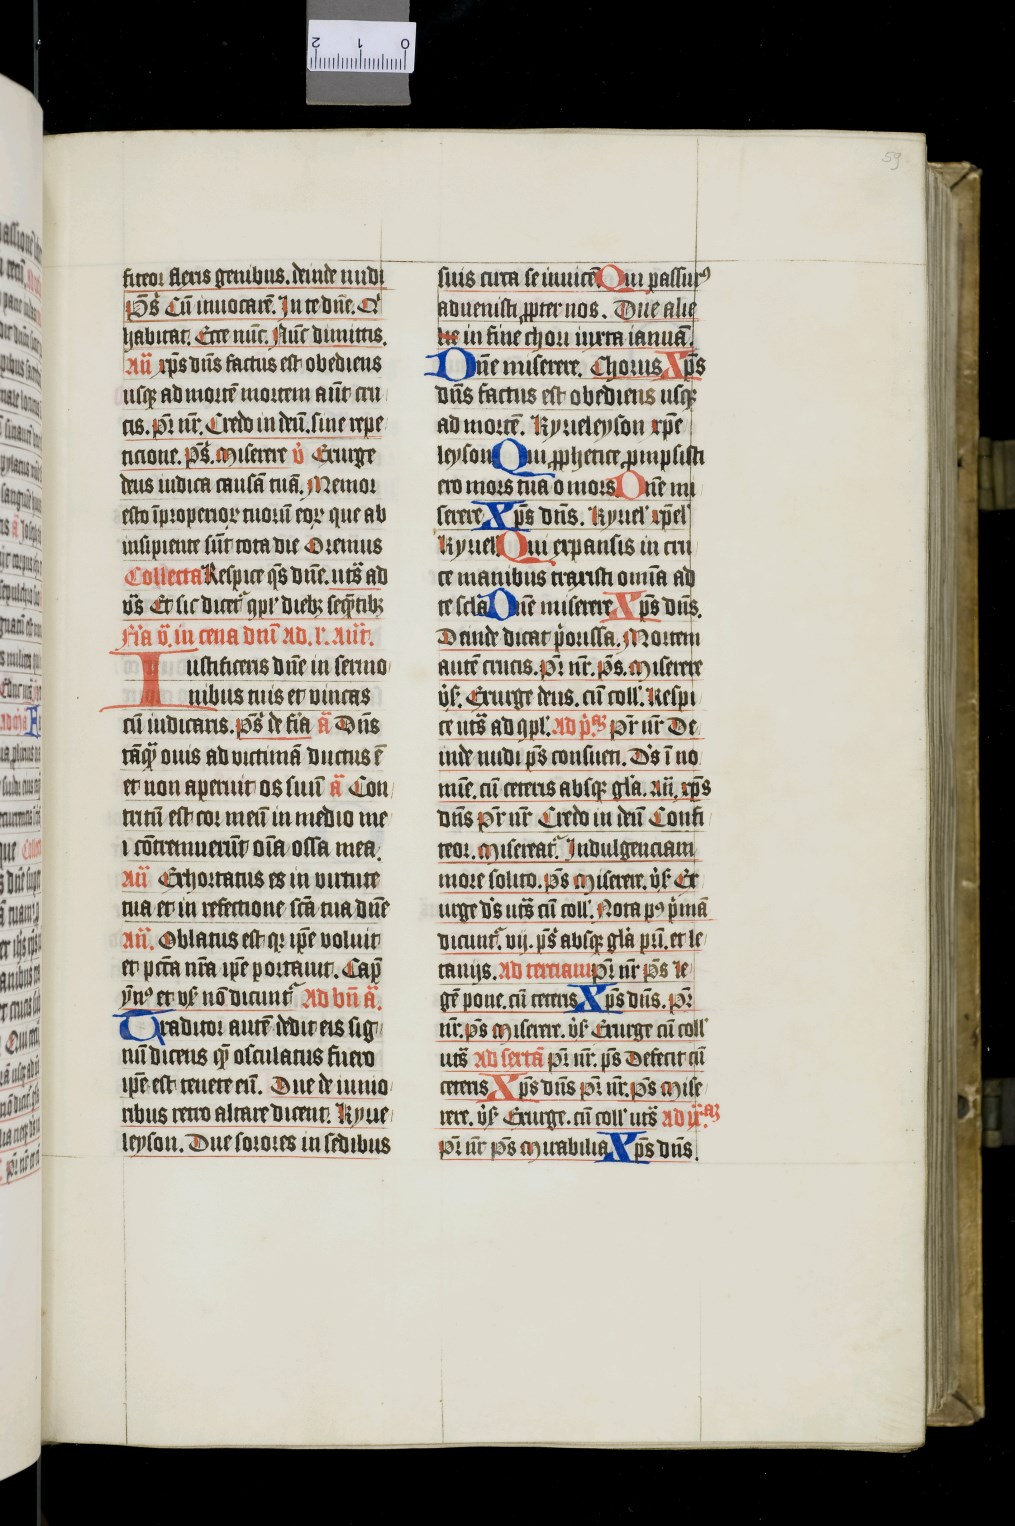 59
fiteor flexis genibus. deinde nudi
p̄s̄ Cū inuocarē. In te dn̄e. Q̇
habitat. Ecce nūc. Nūc dimittis.
Añ xp̄s dn̄s factus est obediens
usqꝫ ad mortē mortem aūt cru
cis. Pr̄ nr̄. Credo in deū. sine repe
ticione. p̄s̄. Miserere v̇ Exurge
deus iudica causā tuā. Memor
esto īproperioꝝ tuorū eoꝝ que ab
insipiente sūt tota die Oremus
Collecta Respice qs̄ dn̄e. uts̄ ad
vs̄ Et sic dicet᷑ qpl᷑ diebꝫ seq̄ntibꝫ
Fīa v̄. in cena dn̄i Ad. i᷑. Añt᷑.
Iustificeris dn̄e in sermo
nibus tuis et vincas
cū iudicaris. p̄s̄ de fīa ā Dn̄s
tāqꝫ ouis ad victimā ductus ē
et non aperuit os suū ā Con
tritū est cor meū in medio me
i cōtremuerūt oīa ossa mea.
Añ Exhortatus es in virtute
tua et in refectione sc̄a tua dn̄e
Añ. Oblatus est qꝛ ip̄e voluit
et pc̄ta nr̄a ip̄e portauit. Cap̄
ẏn᷒ et vs̄ nō dicunt᷑ Ad bn̄ ā.
Traditor autē dedit eis sig
nū dicens qē osculatus fuero
ip̄e est tenete eū. Due de iunio
ribus retro altare dicent. Kyrie
leyson. Due sorores in sedibus
suis circa se inuicē Qui passur᷒
aduenisti ꝓpter nos. Due alie
in fine chori iuxta ianuā.
Dn̄e miserere. Chorus Xp̄s
dn̄s factus est obediens usqꝫ
ad mortē. Kyrieleyson xp̄e
leyson Qui ꝓphetice ꝓmpsisti
ero mors tua o mors Dn̄e mi
serere Xp̄s dn̄s. Kyriel᷑ xp̄el᷑
Kyriel᷑ Qui expansis in cru
ce manibus traxisti omīa ad
te sc̄la Dn̄e miserere Xp̄s dn̄s.
Deinde dicat p̄orissa. Mortem
autē crucis. Pr̄ nr̄. p̄s. Miserere
v̇s. Exurge deus. cū coll᷑. Respi
ce uts̄ ad qpl᷑. Ad p̄.ᵃᵐ Pr̄ nr̄ De
inde nudi p̄s consueti. Ds̄ ī no
mīe. cū ceteris absqꝫ gl̄a. Añ. xp̄s
dn̄s Pr̄ nr̄ Credo in deū Confi
teor. Misereat᷑. Indulgenciam
more solito. p̄s Miserere. v̇s Ex
urge ds̄ uts̄ cū coll᷑. Nota p᷒ p̄mā
dicunt᷑. vij. p̄s̄ absqꝫ gl̄a pr̄i. et le
tanijs. Ad terciam Pr̄ nr̄ p̄s le
gē pone. cū ceteris Xp̄s dn̄s. Pr̄
nr̄. p̄s Miserere. v̇s Exurge cū coll᷑
uts̄ Ad sextā Pr̄ nr̄. p̄s Defecit cū
ceteris Xp̄s dn̄s Pr̄ nr̄. p̄s Mise
rere. v̇s Exurge. cū coll᷑ uts̄ Ad ix.ᵃᵐ
Pr̄ nr̄ p̄s Mirabilia Xp̄s dn̄s.